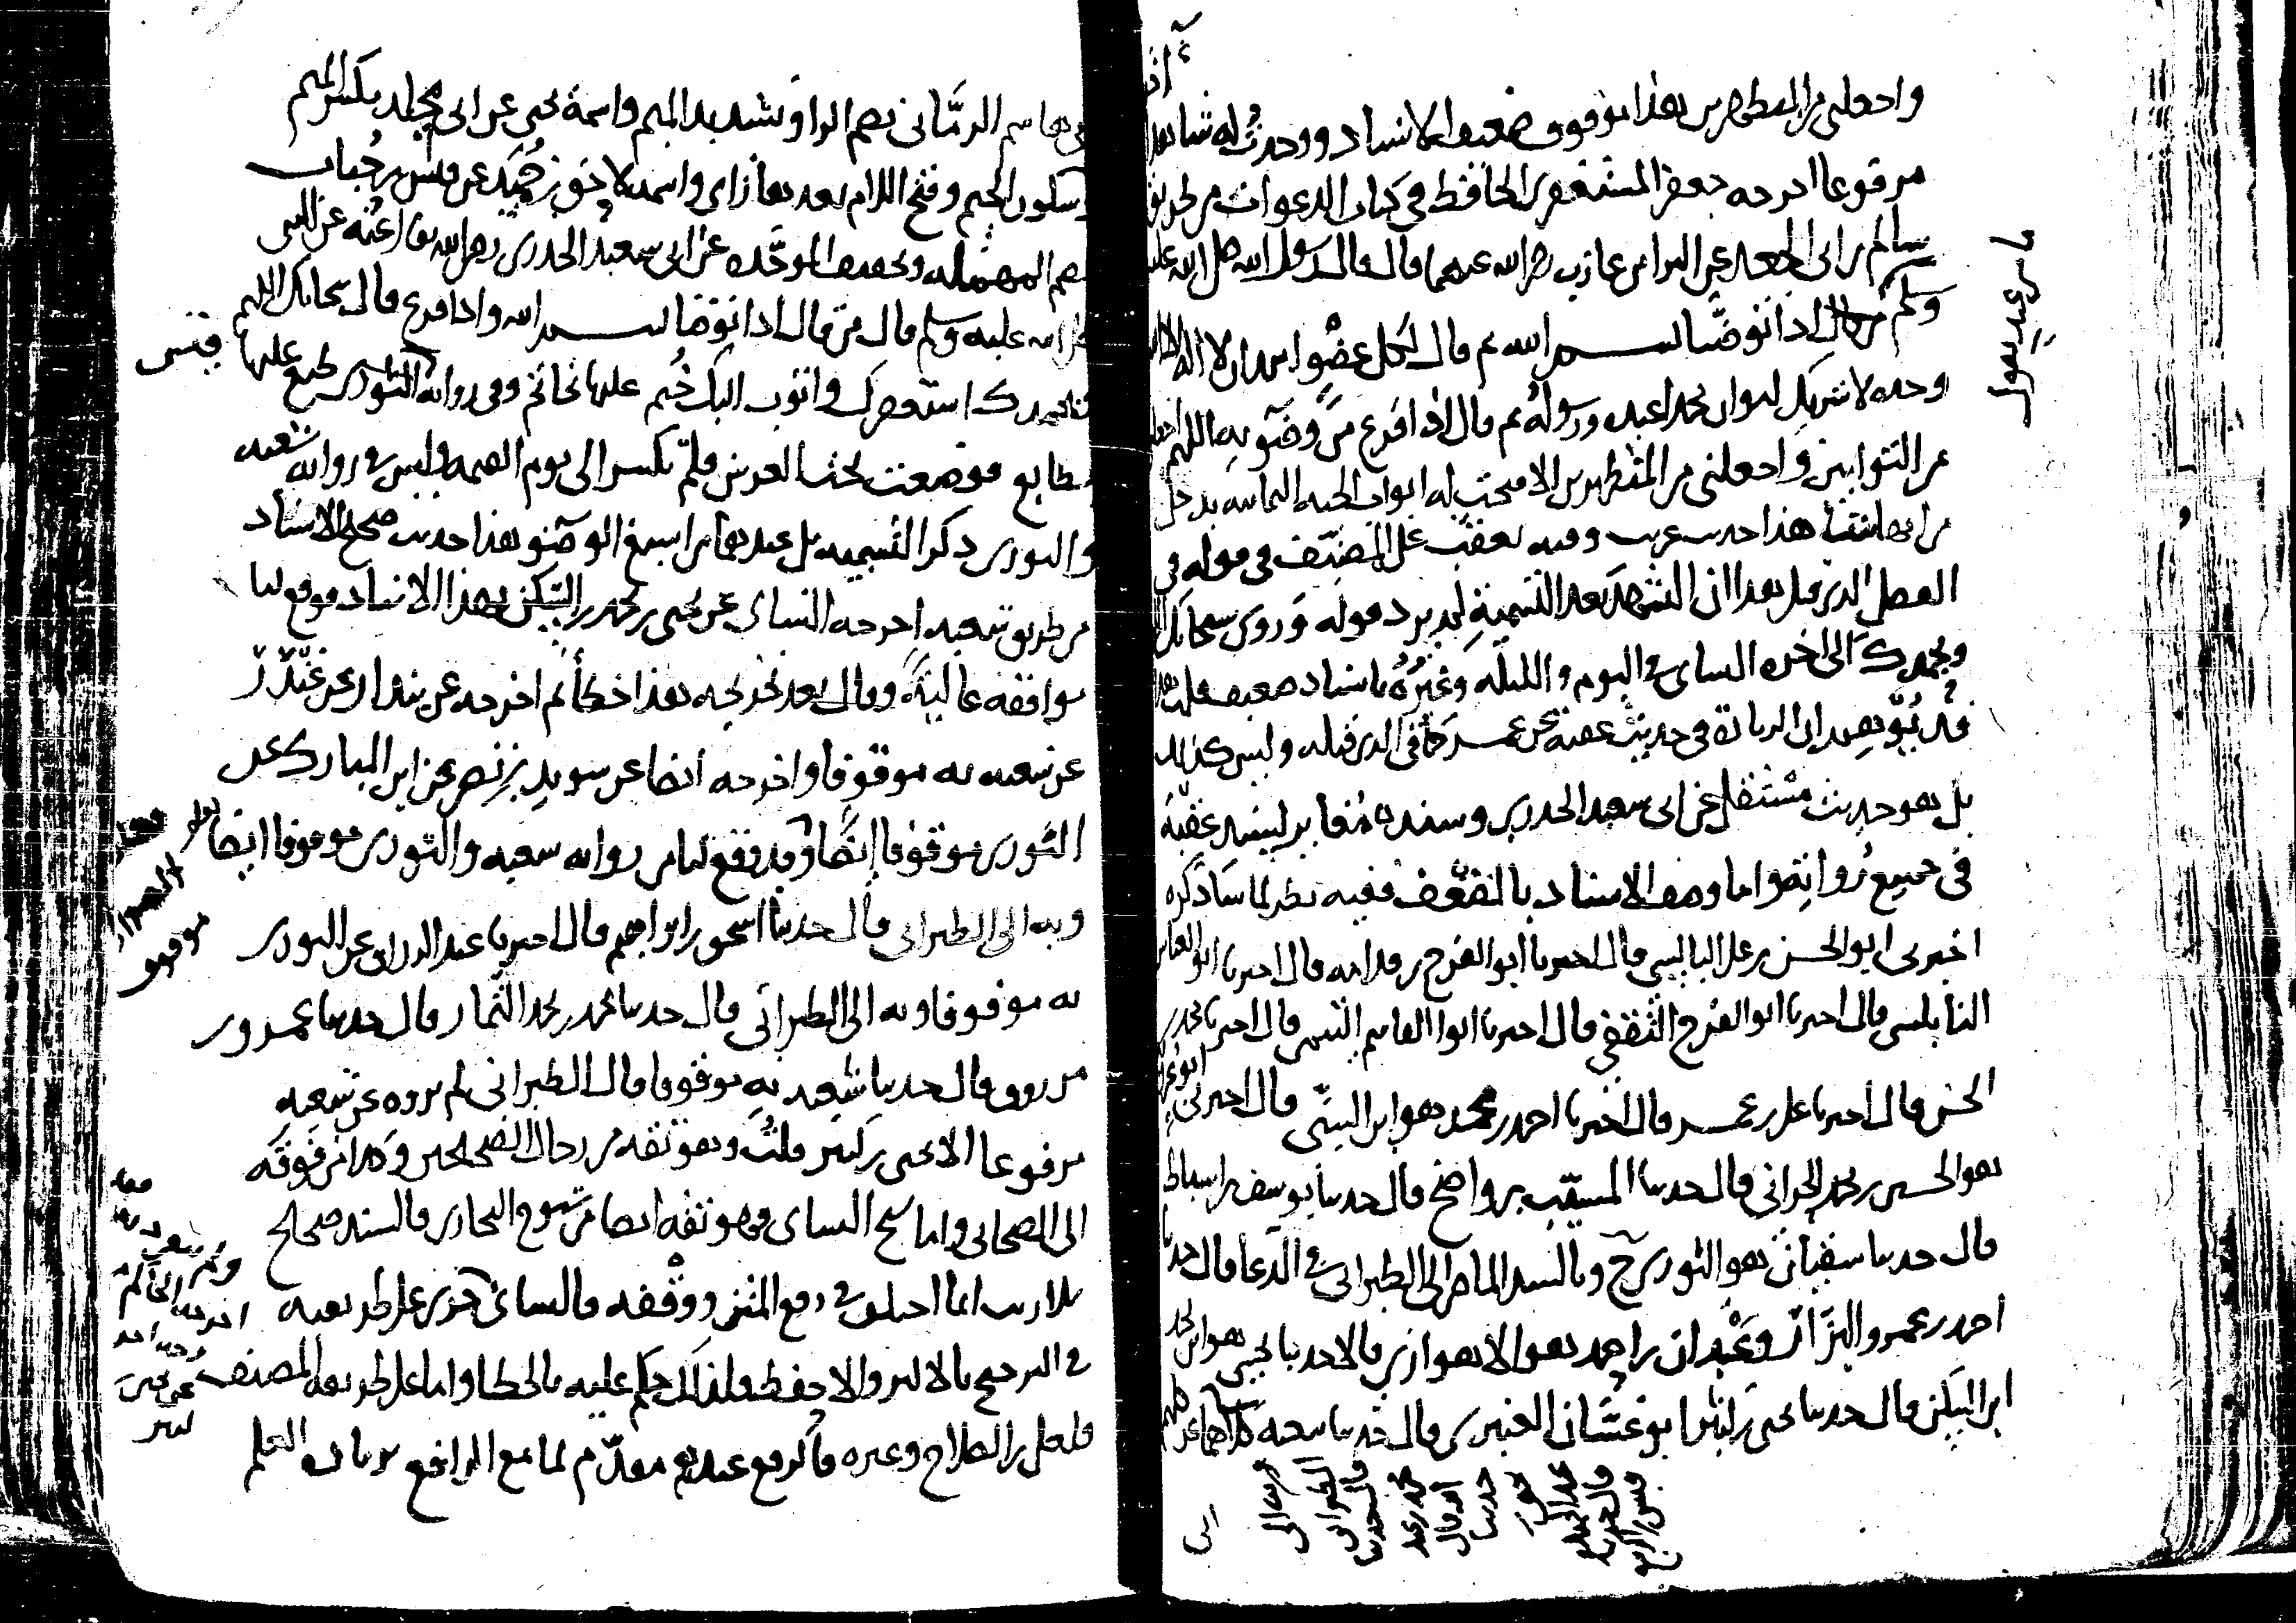 واجعلني من المتطهرين هذا موقوف ضعيف الاسناد ووجدت له شاهدا
مرفوعا اخرجه جعفر المستغفري الحافظ في كتاب الدعوات من طريق
سالم بن ابي الجعد عن البراء بن عازب رضي الله عنهما قال قال رسول الله صلى الله عليه
وسلم من قال اذا توضا بسم الله ثم قال لكل عضو اشهد ان لا اله الا الله
وحده لا شريك له وان محمدا عبده ورسوله ثم قال اذا فرغ من وضوئه اللهم اجعلني
من التوابين واجعلني من المتطهرين الا فتحت له ابواب الجنة الثمانية يدخل
من ايها شا هذا حديث غريب وفيه تعقب على المصنف في قوله في
الفصل الذي قبل هذا ان التشهد بعد التسمية لم يرد قوله وروى سبحانك اللهم
وبحمدك الى اخره النساي في اليوم والليلة وغيره باسناد ضعيف قلت هذا
قد يوهم ان الزيادة في حديث عقبة عن عمر كما في الذي قبله وليس كذلك
بل هو حديث مستقل عن ابي سعيد الخدري وسنده مغاير لسند عقبة
في جميع رواته واما وصف الاسناد بالضعف ففيه نظر لما ساذكره
اخبرني ابو الحسن بن علي البالسي قال اخبرنا ابو الفرج بن قدامه قال اخبرنا ابو العباس
النابلسي قال اخبرنا ابو الفرج الثقفي قال اخبرنا ابو القاسم التيمي قال اخبرنا محمد بن
الحسن قال اخبرنا علي بن عمر قال اخبرنا احمد بن محمد هو ابن السني قال اخبرني ابو عروبة
هو الحسين بن محمد الحراني قال حدثنا المسيب بن واضح قال حدثنا يوسف بن اسباط
قال حدثنا سفيان هو الثوري ح وبالسند الماضي الى الطبراني في الدعا قال حدثنا
احمد بن عمرو البزار وعبدان بن احمد هو الاهوازي قالا حدثنا يحيى هو ابن محمد
ابن السكن قال حدثنا يحيى بن كثير ابو غسان العنبري قال حدثنا شعبة كلاهما عن
ابي هاشم الرماني بضم الرا وتشديد الميم واسمه يحيى عن ابي مجلز بكسر الميم
وسكون الجيم وفتح اللام بعدها زاي واسمه لاحق بن حميد عن قيس بن عباد
بضم المهملة وتخفيف الموحدة عن ابي سعيد الخدري رضي الله تعالى عنه عن النبي
صلى الله عليه وسلم قال من قال اذا توضا بسم الله واذا فرغ قال سبحانك اللهم
وبحمدك استغفرك واتوب اليك ختم عليها بخاتم وفي رواية الثوري طبع عليها
بطابع فوضعت تحت العرش فلم تكسر الى يوم القيمة وليس في رواية شعبه
والثوري ذكر التسمية بل عندهما من اسبغ الوضو هذا حديث صحيح الاسناد
من طريق شعبه اخرجه النساي عن يحيى بن محمد بن السكن بهذا الاسناد فوقع لنا
موافقة عالية وقال بعد تخريجه هذا خطأ ثم اخرجه عن بندار عن غندر
عن شعبه به موقوفا واخرجه ايضا عن سويد بن نصر عن ابن المبارك عن
الثوري موقوفا ايضا وقد وقع لنا من رواية شعبه والثوري موقوفا ايضا
وبه الى الطبراني قال حدثنا اسحق بن ابراهيم قال اخبرنا عبد الرزاق عن الثوري
به موقوفا وبه الى الطبراني قال حدثنا محمد بن محمد التمار قال حدثنا عمرو بن
مرزوق قال حدثنا شعبه به موقوفا قال الطبراني لم يروه عن شعبه
مرفوعا الا يحيى بن كثير قلت وهو ثقه من رجال الصحيحين وكذا من فوقه
الى الصحابي واما شيخ النساي فهو ثقه ايضا من شيوخ البخاري فالسند صحيح
بلا ريب انما اختلف في رفع المتن ووقفه فالنساي جرى على طريقته
في الترجيح بالاكثر والاحفظ فلذلك حكم عليه بالخطا واما على طريقة المصنف
وابن الصلاح وغيره فالرفع عندهم مقدم لما مع الرافع من زيادة العلم